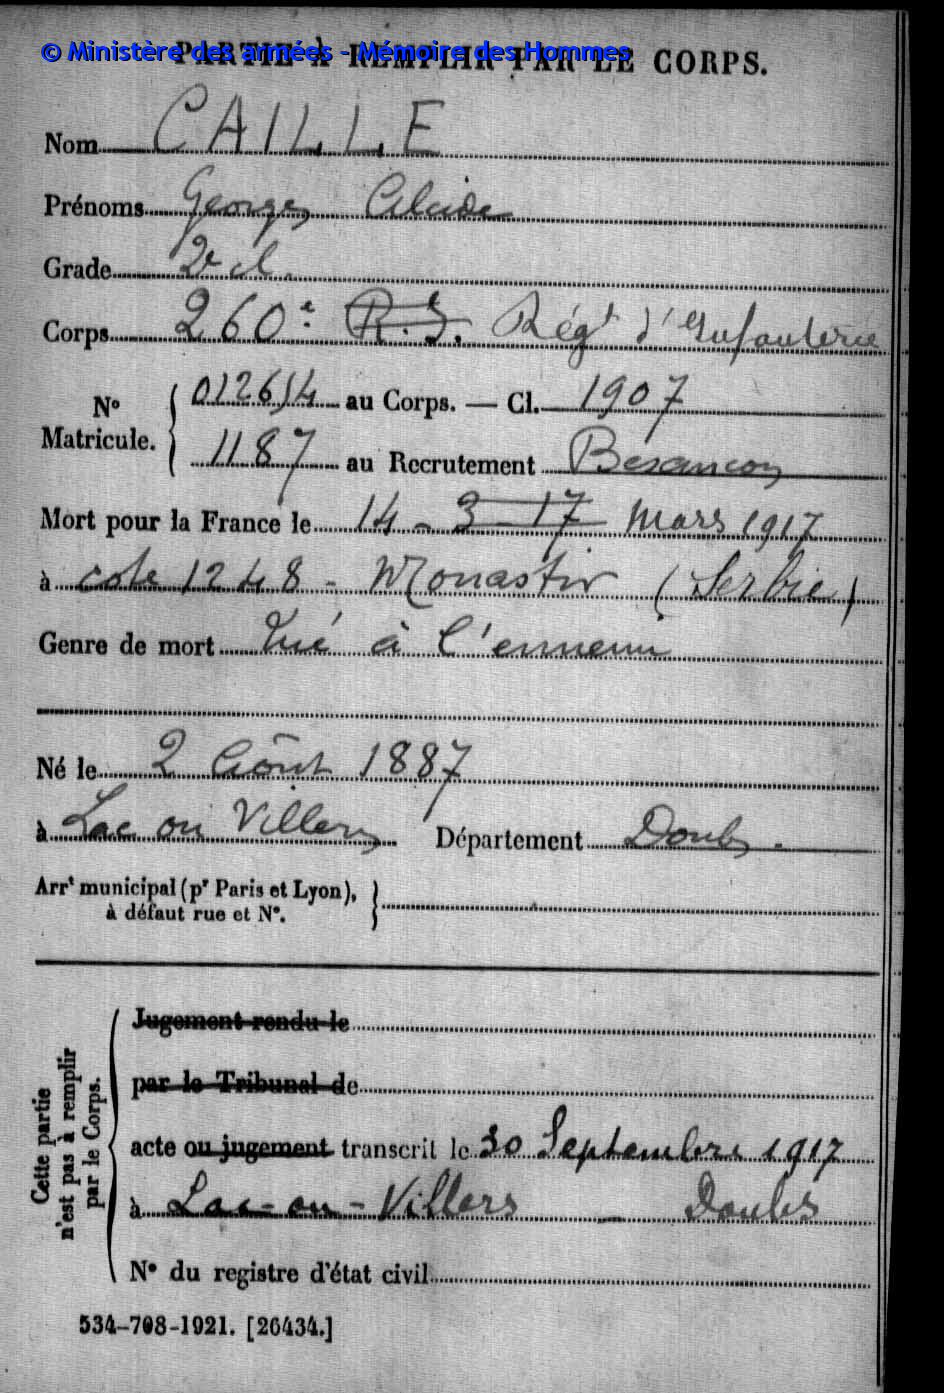 © Ministère des armées - Mémoire des Hommes
PARTIE À REMPLIR PAR LE CORPS.
Nom CAILLE
Prénoms Georges Alcide
Grade 2e cl.
Corps 260e R.I. Régt d'Infanterie
No Matricule. 012614 au Corps. — Cl. 1907
1187 au Recrutement Besançon
Mort pour la France le 14 - 3 - 17 mars 1917
à cote 1248 - Monastir (Serbie)
Genre de mort Tué à l'ennemi
Né le 2 Août 1887
à Lac ou Villers Département Doubs.
Arrt municipal (pr Paris et Lyon),
à défaut rue et No.
Cette partie n'est pas à remplir par le Corps.
Jugement rendu le
par le Tribunal de
acte ou jugement transcrit le 30 Septembre 1917
à Lac-ou-Villers - Doubs
No du registre d'état civil
534-708-1921. [26434.]